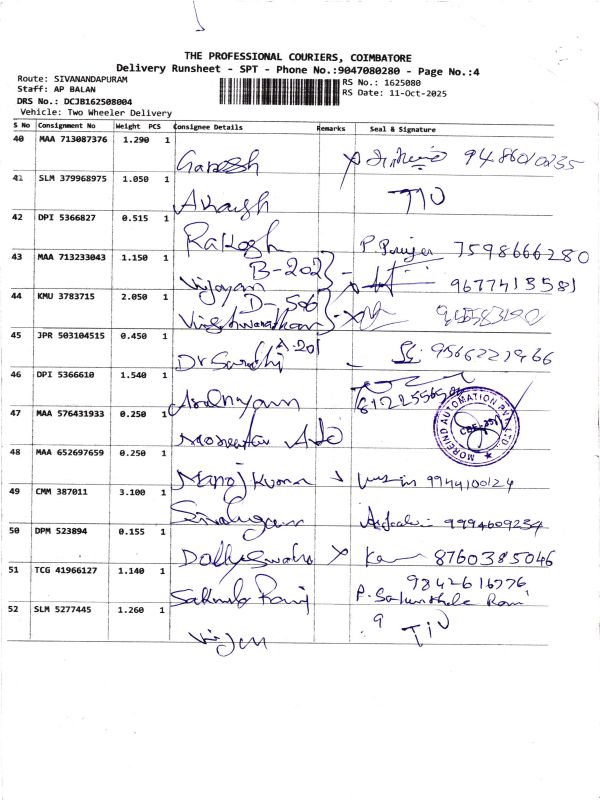 THE PROFESSIONAL COURIERS, COIMBATORE
Delivery Runsheet - SPT - Phone No.:9047080280 - Page No.:4
Route: SIVANANDAPURAM RS No.: 1625080
Staff: AP BALAN RS Date: 11-Oct-2025
DRS No.: DCJB162508004
Vehicle: Two Wheeler Delivery
S No Consignment No Weight PCS Consignee Details Remarks Seal & Signature
40 MAA 713087376 1.290 1
Ganesh 9486010235
41 SLM 379968975 1.050 1
Akash
42 DPI 5366827 0.515 1
Rakesh 7598666280
43 MAA 713233043 1.150 1
B-202
Vijayan 9677413581
44 KMU 3783715 2.050 1
D-506
Vigshwarathan
45 JPR 503104515 0.450 1
A-201
Dr Sarathi 9566221966
46 DPI 5366610 1.540 1
47 MAA 576431933 0.250 1
MOREIND AUTOMATION PVT. LTD.
48 MAA 652697659 0.250 1
Manoj Kumar 9944100124
49 CMM 387011 3.100 1
9994609234
50 DPM 523894 0.155 1
8760385046
51 TCG 41966127 1.140 1
9842616776
52 SLM 5277445 1.260 1